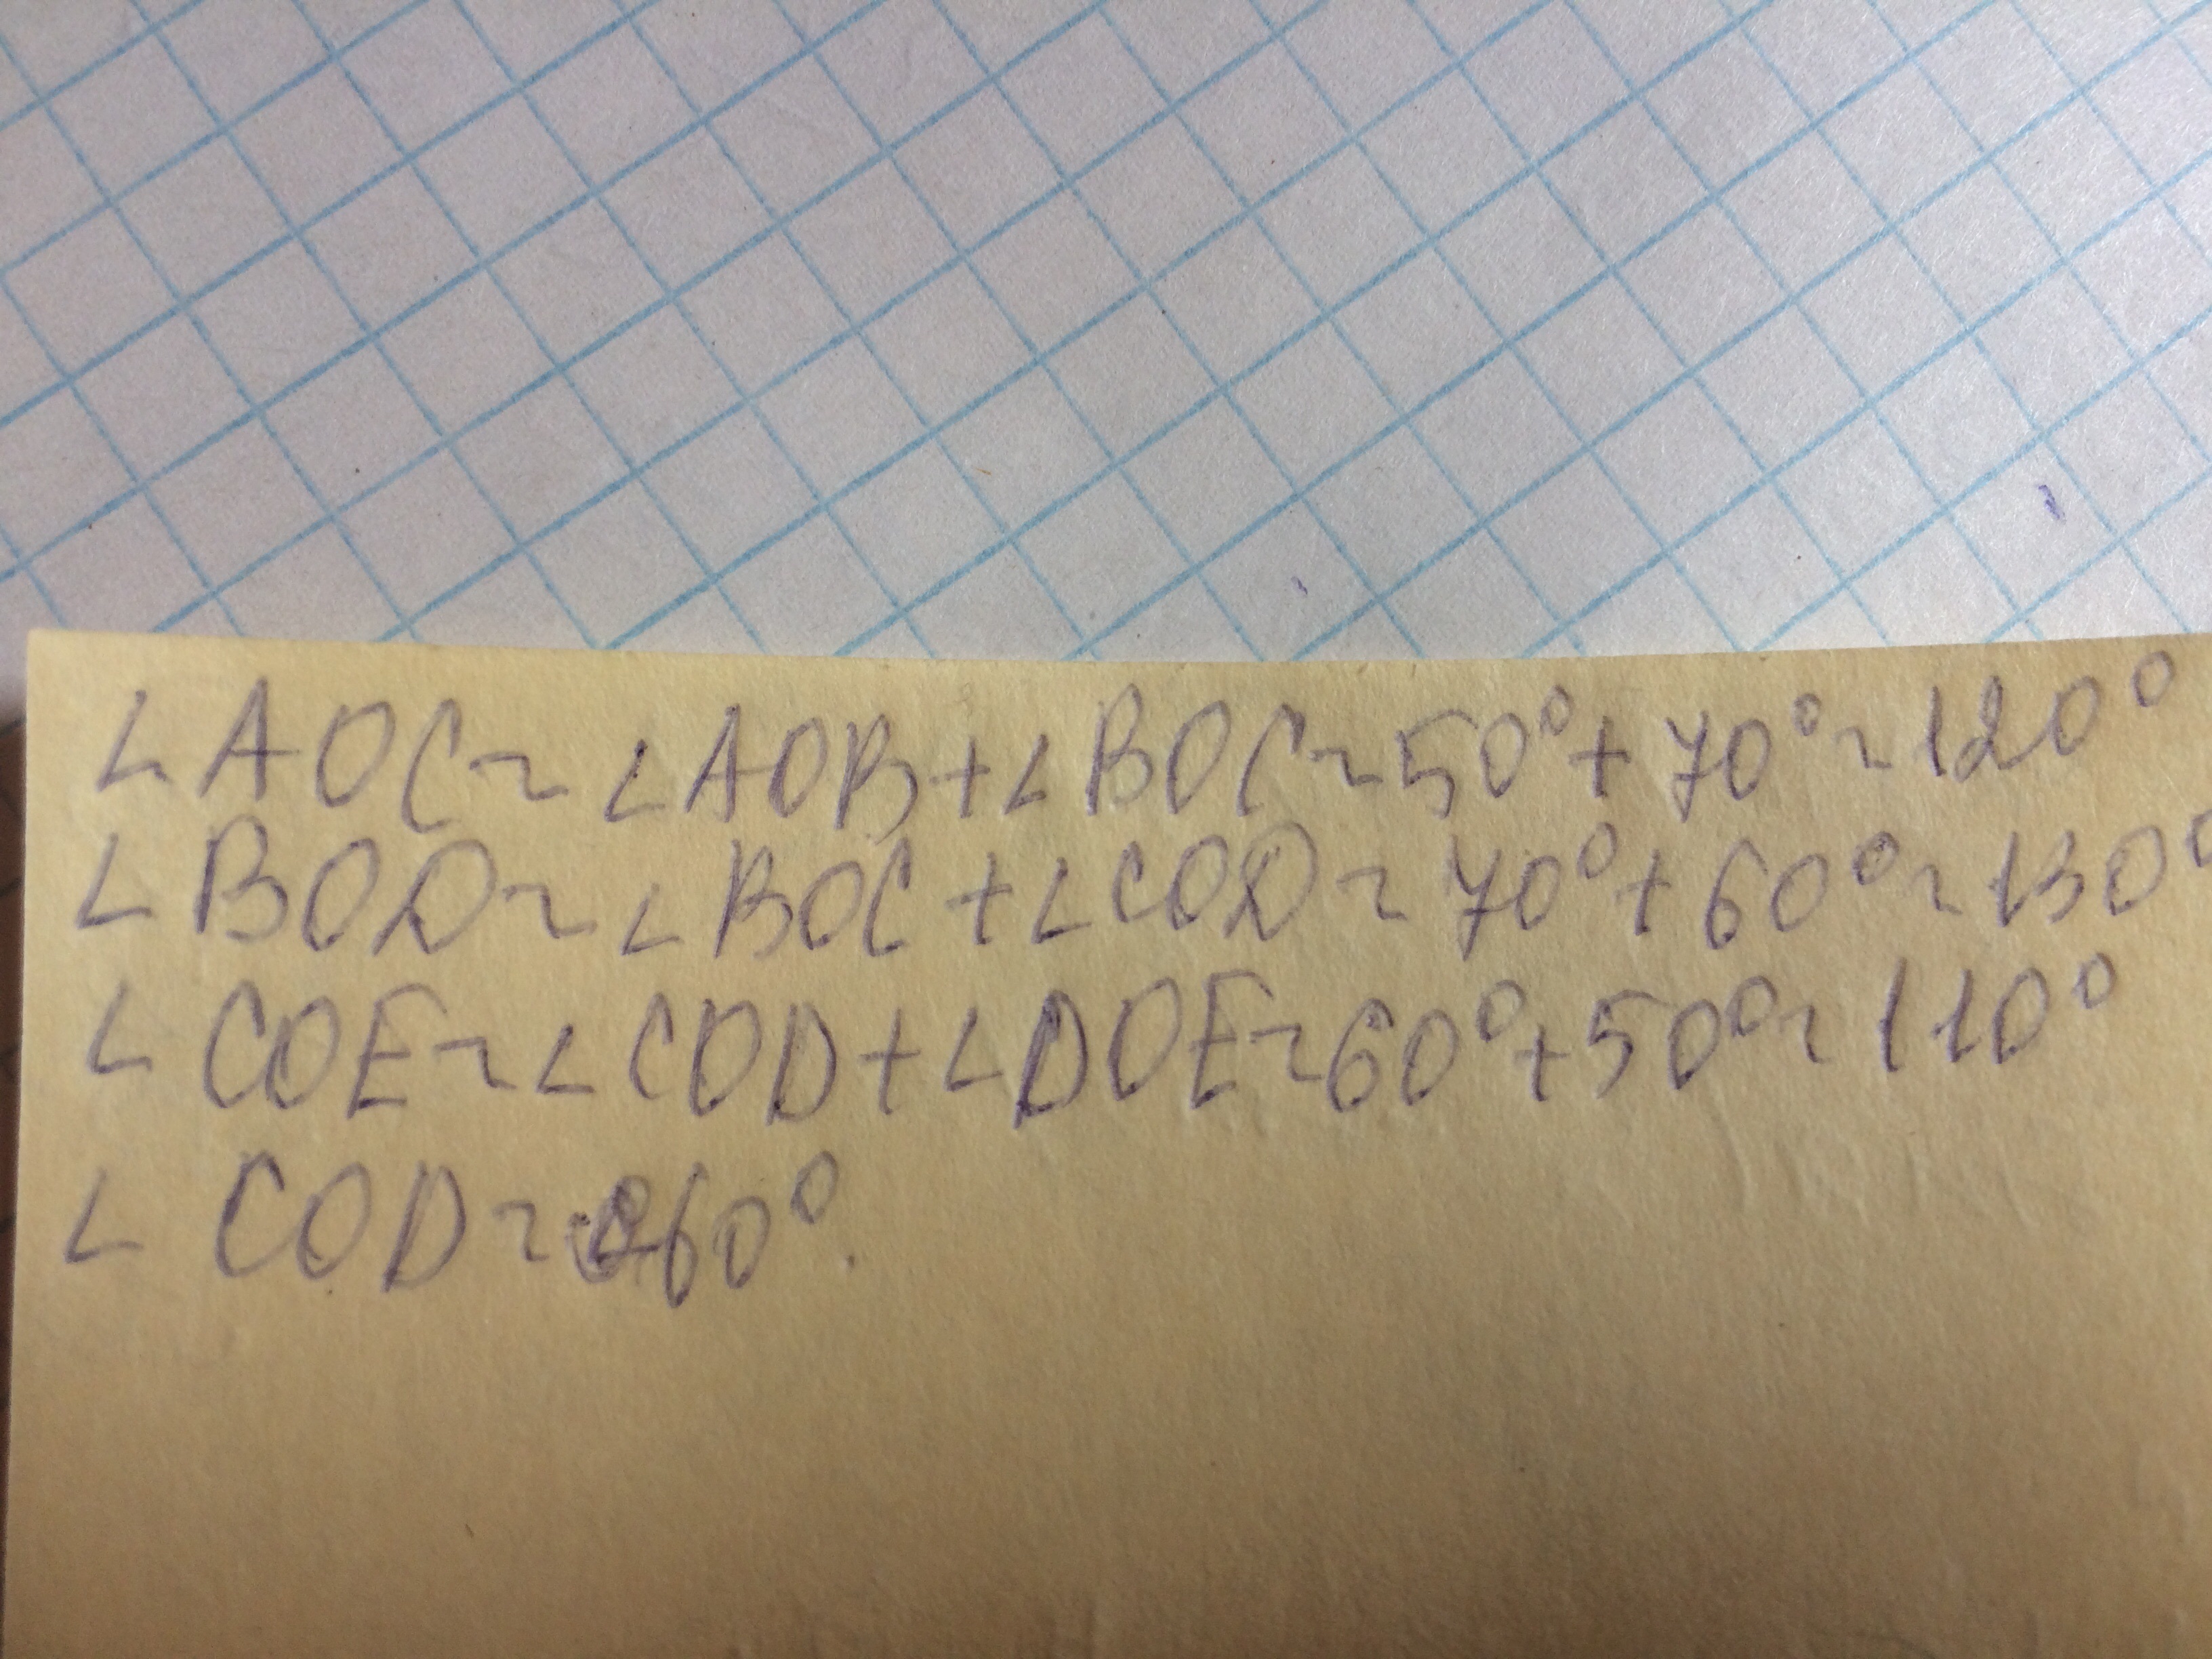 ∠AOC = ∠AOB + ∠BOC = 50° + 70° = 120°
∠BOD = ∠BOC + ∠COD = 70° + 60° = 130°
∠COE = ∠COD + ∠DOE = 60° + 50° = 110°
∠COD = 60°.